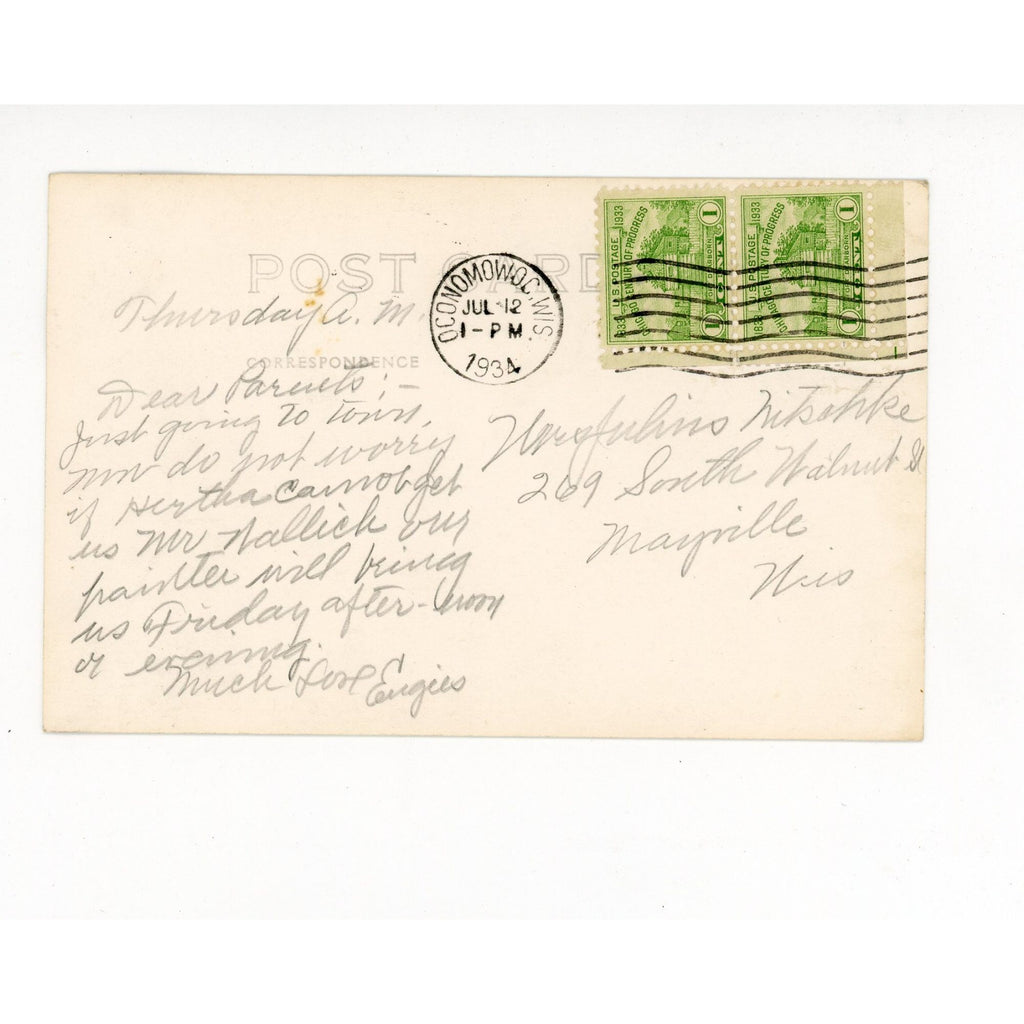 POST CARD
Thursday A. M.
CORRESPONDENCE
Dear Parents; —
Just going to town,
now do not worry
if Hertha cannot get
us Mr Wallich our
painter will bring
us Friday after-noon
or evening.
Much Love Engies
OCONOMOWOC, WIS.
JUL 12
1 - PM
1934
U.S. POSTAGE 1933
1833 CHICAGO CENTURY OF PROGRESS
1 1
U.S. POSTAGE 1933
1833 CHICAGO CENTURY OF PROGRESS
1 1
Mrs Julius Nitschke
269 South Walnut St
Mayville
Wis